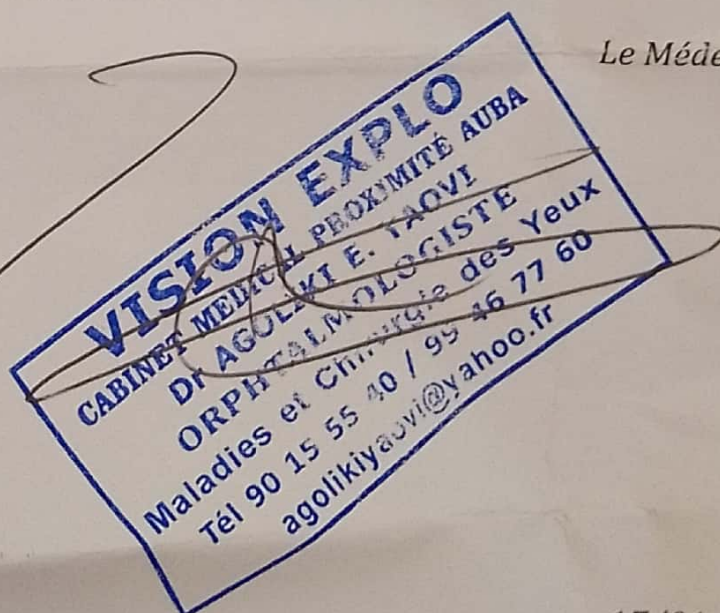 Le Méde
VISION EXPLO
CABINET MEDICAL PROXIMITÉ AUBA
Dr AGOLIKI E. YAOVI
ORPHTALMOLOGISTE
Maladies et Chirurgie des Yeux
Tél 90 15 55 40 / 99 46 77 60
agolikiyaovi@yahoo.fr